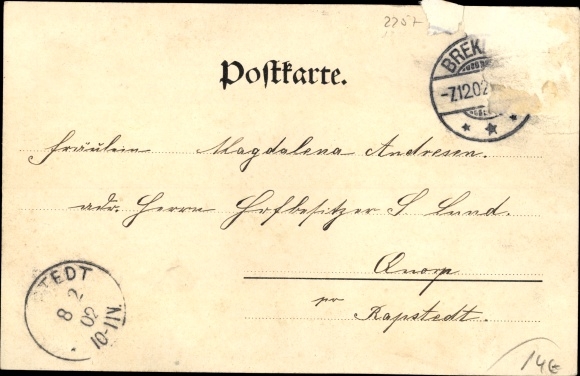 2207
Postkarte.
BREK
-7.12.02
Fräulein Magdalena Andresen.
adr. Herrn Hofbesitzer S Lund.
Quorp
pr
Rapstedt.
STEDT
8 2
02
10-11V.
14€